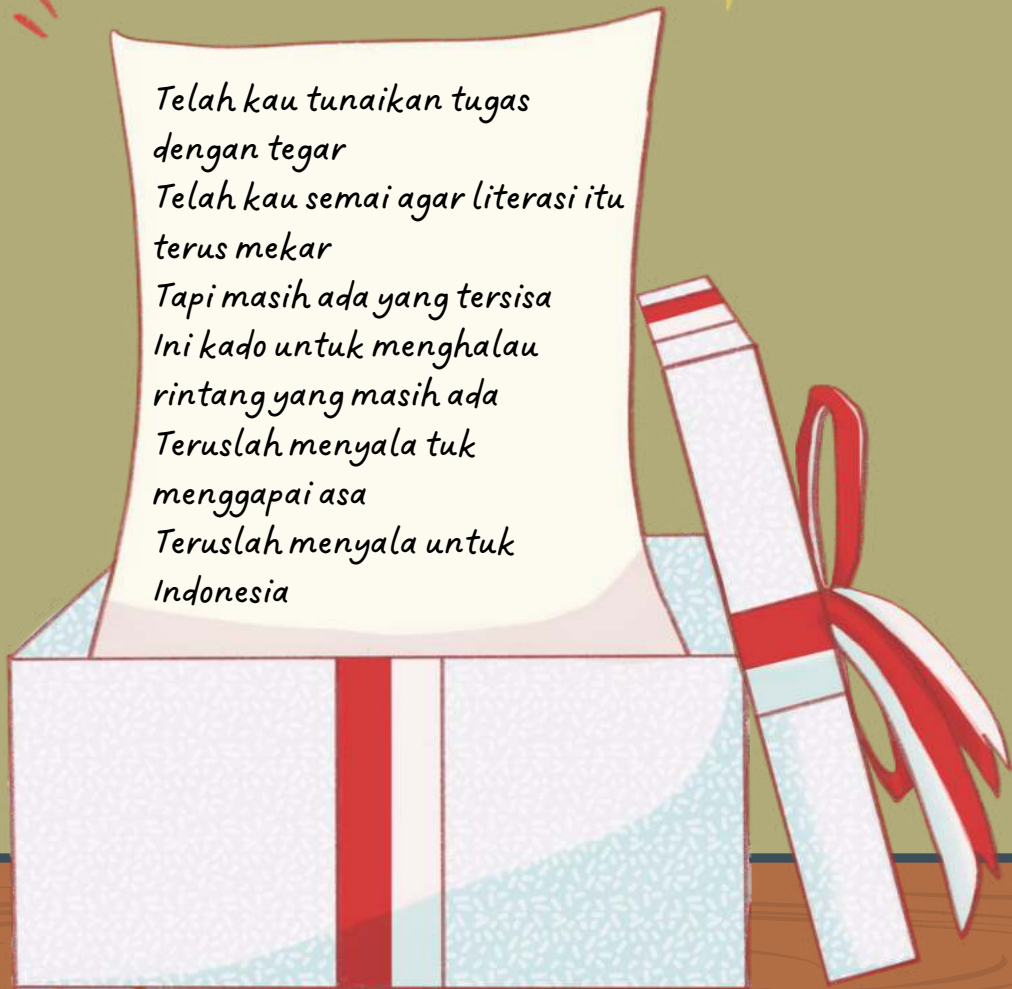 Telah kau tunaikan tugas
dengan tegar
Telah kau semai agar literasi itu
terus mekar
Tapi masih ada yang tersisa
Ini kado untuk menghalau
rintang yang masih ada
Teruslah menyala tuk
menggapai asa
Teruslah menyala untuk
Indonesia